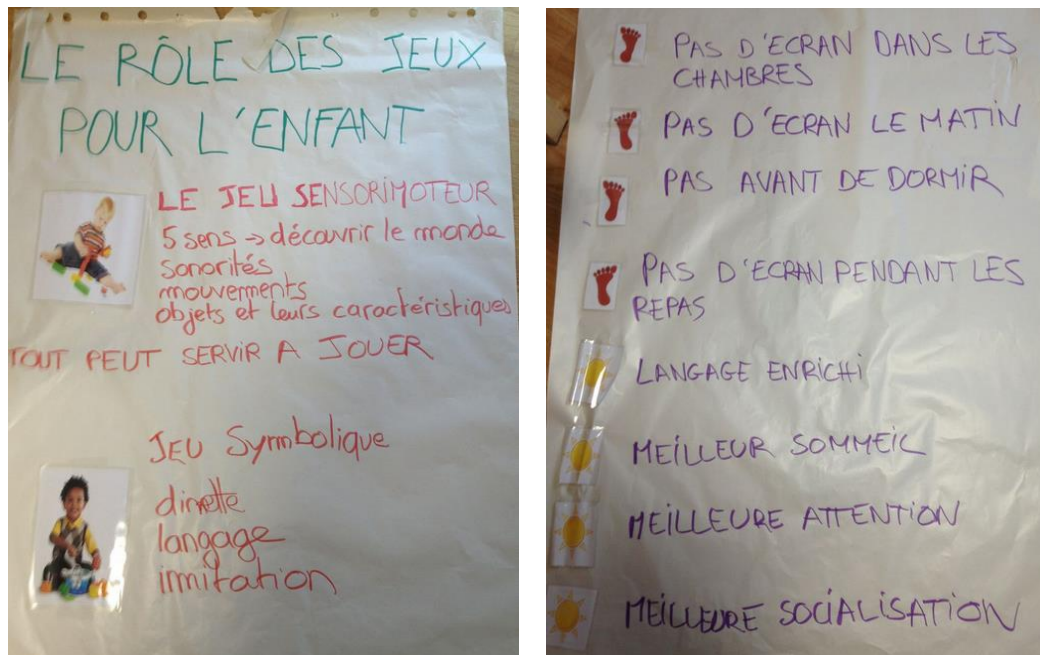 LE RÔLE DES JEUX
POUR L'ENFANT
LE JEU SENSORIMOTEUR
5 sens → découvrir le monde
sonorités
mouvements
objets et leurs caractéristiques
TOUT PEUT SERVIR A JOUER
JEU Symbolique
dinette
langage
immitation
PAS D'ECRAN DANS LES
CHAMBRES
PAS D'ECRAN LE MATIN
PAS AVANT DE DORMIR
PAS D'ECRAN PENDANT LES
REPAS
LANGAGE ENRICHI
MEILLEUR SOMMEIL
MEILLEURE ATTENTION
MEILLEURE SOCIALISATION